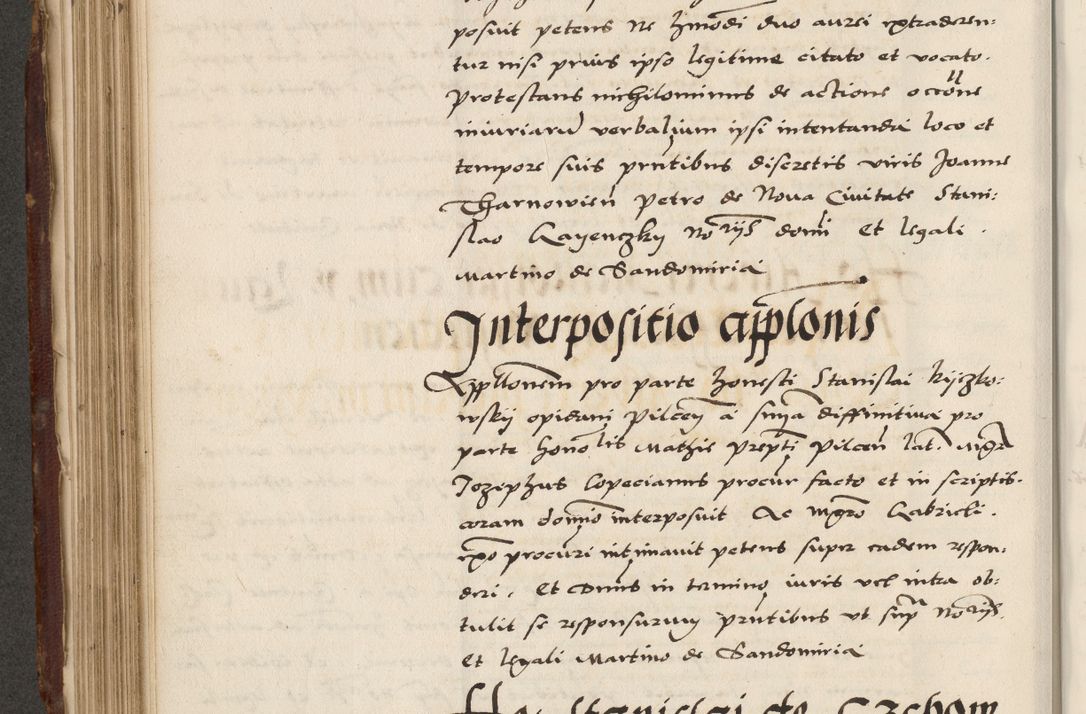 posuit petens ne hmodi duo aurei extraderen:
tur nisi prius ipso legitime citato et vocato.
Protestans nichilominus de actione occone
iniuriaru verbalium ipsi intentanda loco et
tempore suis pntibus discretis viris Joanne
Tharnowien Petro de Nova Civitate Stani:
slao Kayenczky Norijs domi Et legali.
Martino de Sandomiria
Interpositio applonis
Appllonem pro parte honesti Stanislai Kyczko:
wskij opidani Pilcen a smia diffinitiva pro
parte honolis Mathie Prepti Pilcen lat. Mgr
Jozephus Copecianus procur facto et in scriptis.
coram domino interposuit Ac mgro Gabrieli.
expo procuri intimavit petens super eadem respon:
deri. Et Domis in termino iuris vel intra ob:
tulit se responsurum pntibus ut supra Norijs.
Et legali Martino de Sandomiria
Stanislai de